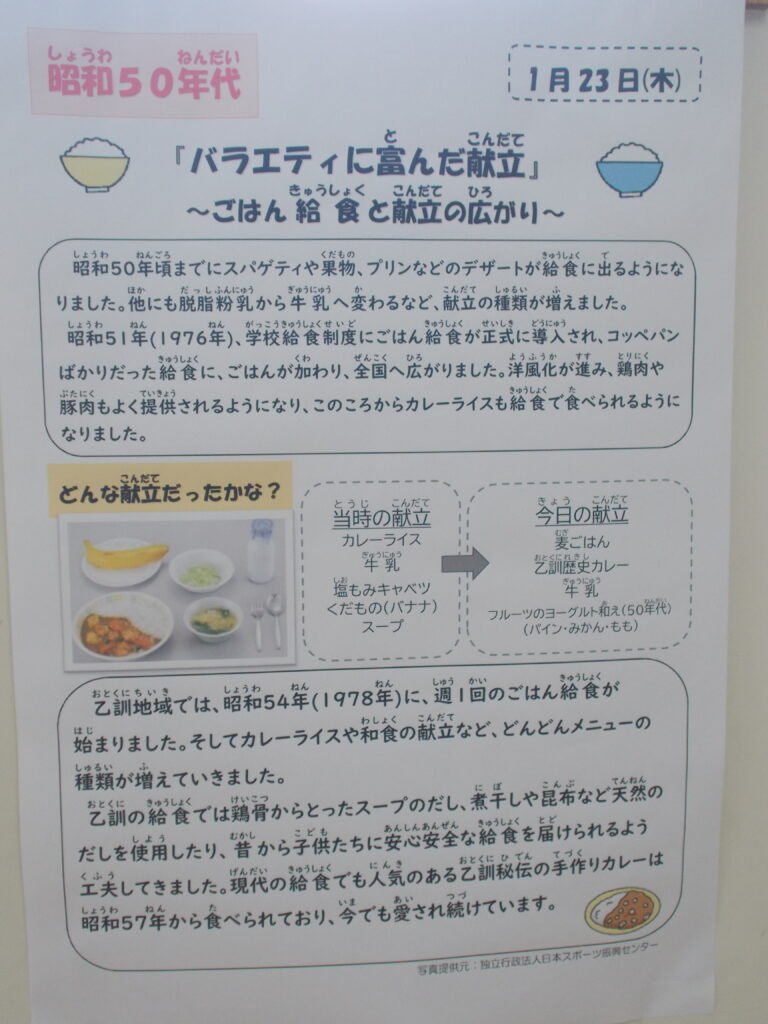 昭和50年代
1月23日(木)
『バラエティに富んだ献立』
~ごはん給食と献立の広がり~
昭和50年頃までにスパゲティや果物、プリンなどのデザートが給食に出るようにな
りました。他にも脱脂粉乳から牛乳へ変わるなど、献立の種類が増えました。
昭和51年(1976年)、学校給食制度にごはん給食が正式に導入され、コッペパン
ばかりだった給食に、ごはんが加わり、全国へ広がりました。洋風化が進み、鶏肉や
豚肉もよく提供されるようになり、このころからカレーライスも給食で食べられるように
なりました。
どんな献立だったかな?
当時の献立
カレーライス
牛乳
塩もみキャベツ
くだもの(バナナ)
スープ
今日の献立
麦ごはん
乙訓歴史カレー
牛乳
フルーツのヨーグルト和え(50年代)
(パイン・みかん・もも)
乙訓地域では、昭和54年(1978年)に、週1回のごはん給食が
始まりました。そしてカレーライスや和食の献立など、どんどんメニューの
種類が増えていきました。
乙訓の給食では鶏骨からとったスープのだし、煮干しや昆布など天然の
だしを使用したり、昔から子供たちに安心安全な給食を届けられるよう
工夫してきました。現代の給食でも人気のある乙訓秘伝の手作りカレーは
昭和57年から食べられており、今でも愛され続けています。
写真提供元:独立行政法人日本スポーツ振興センター